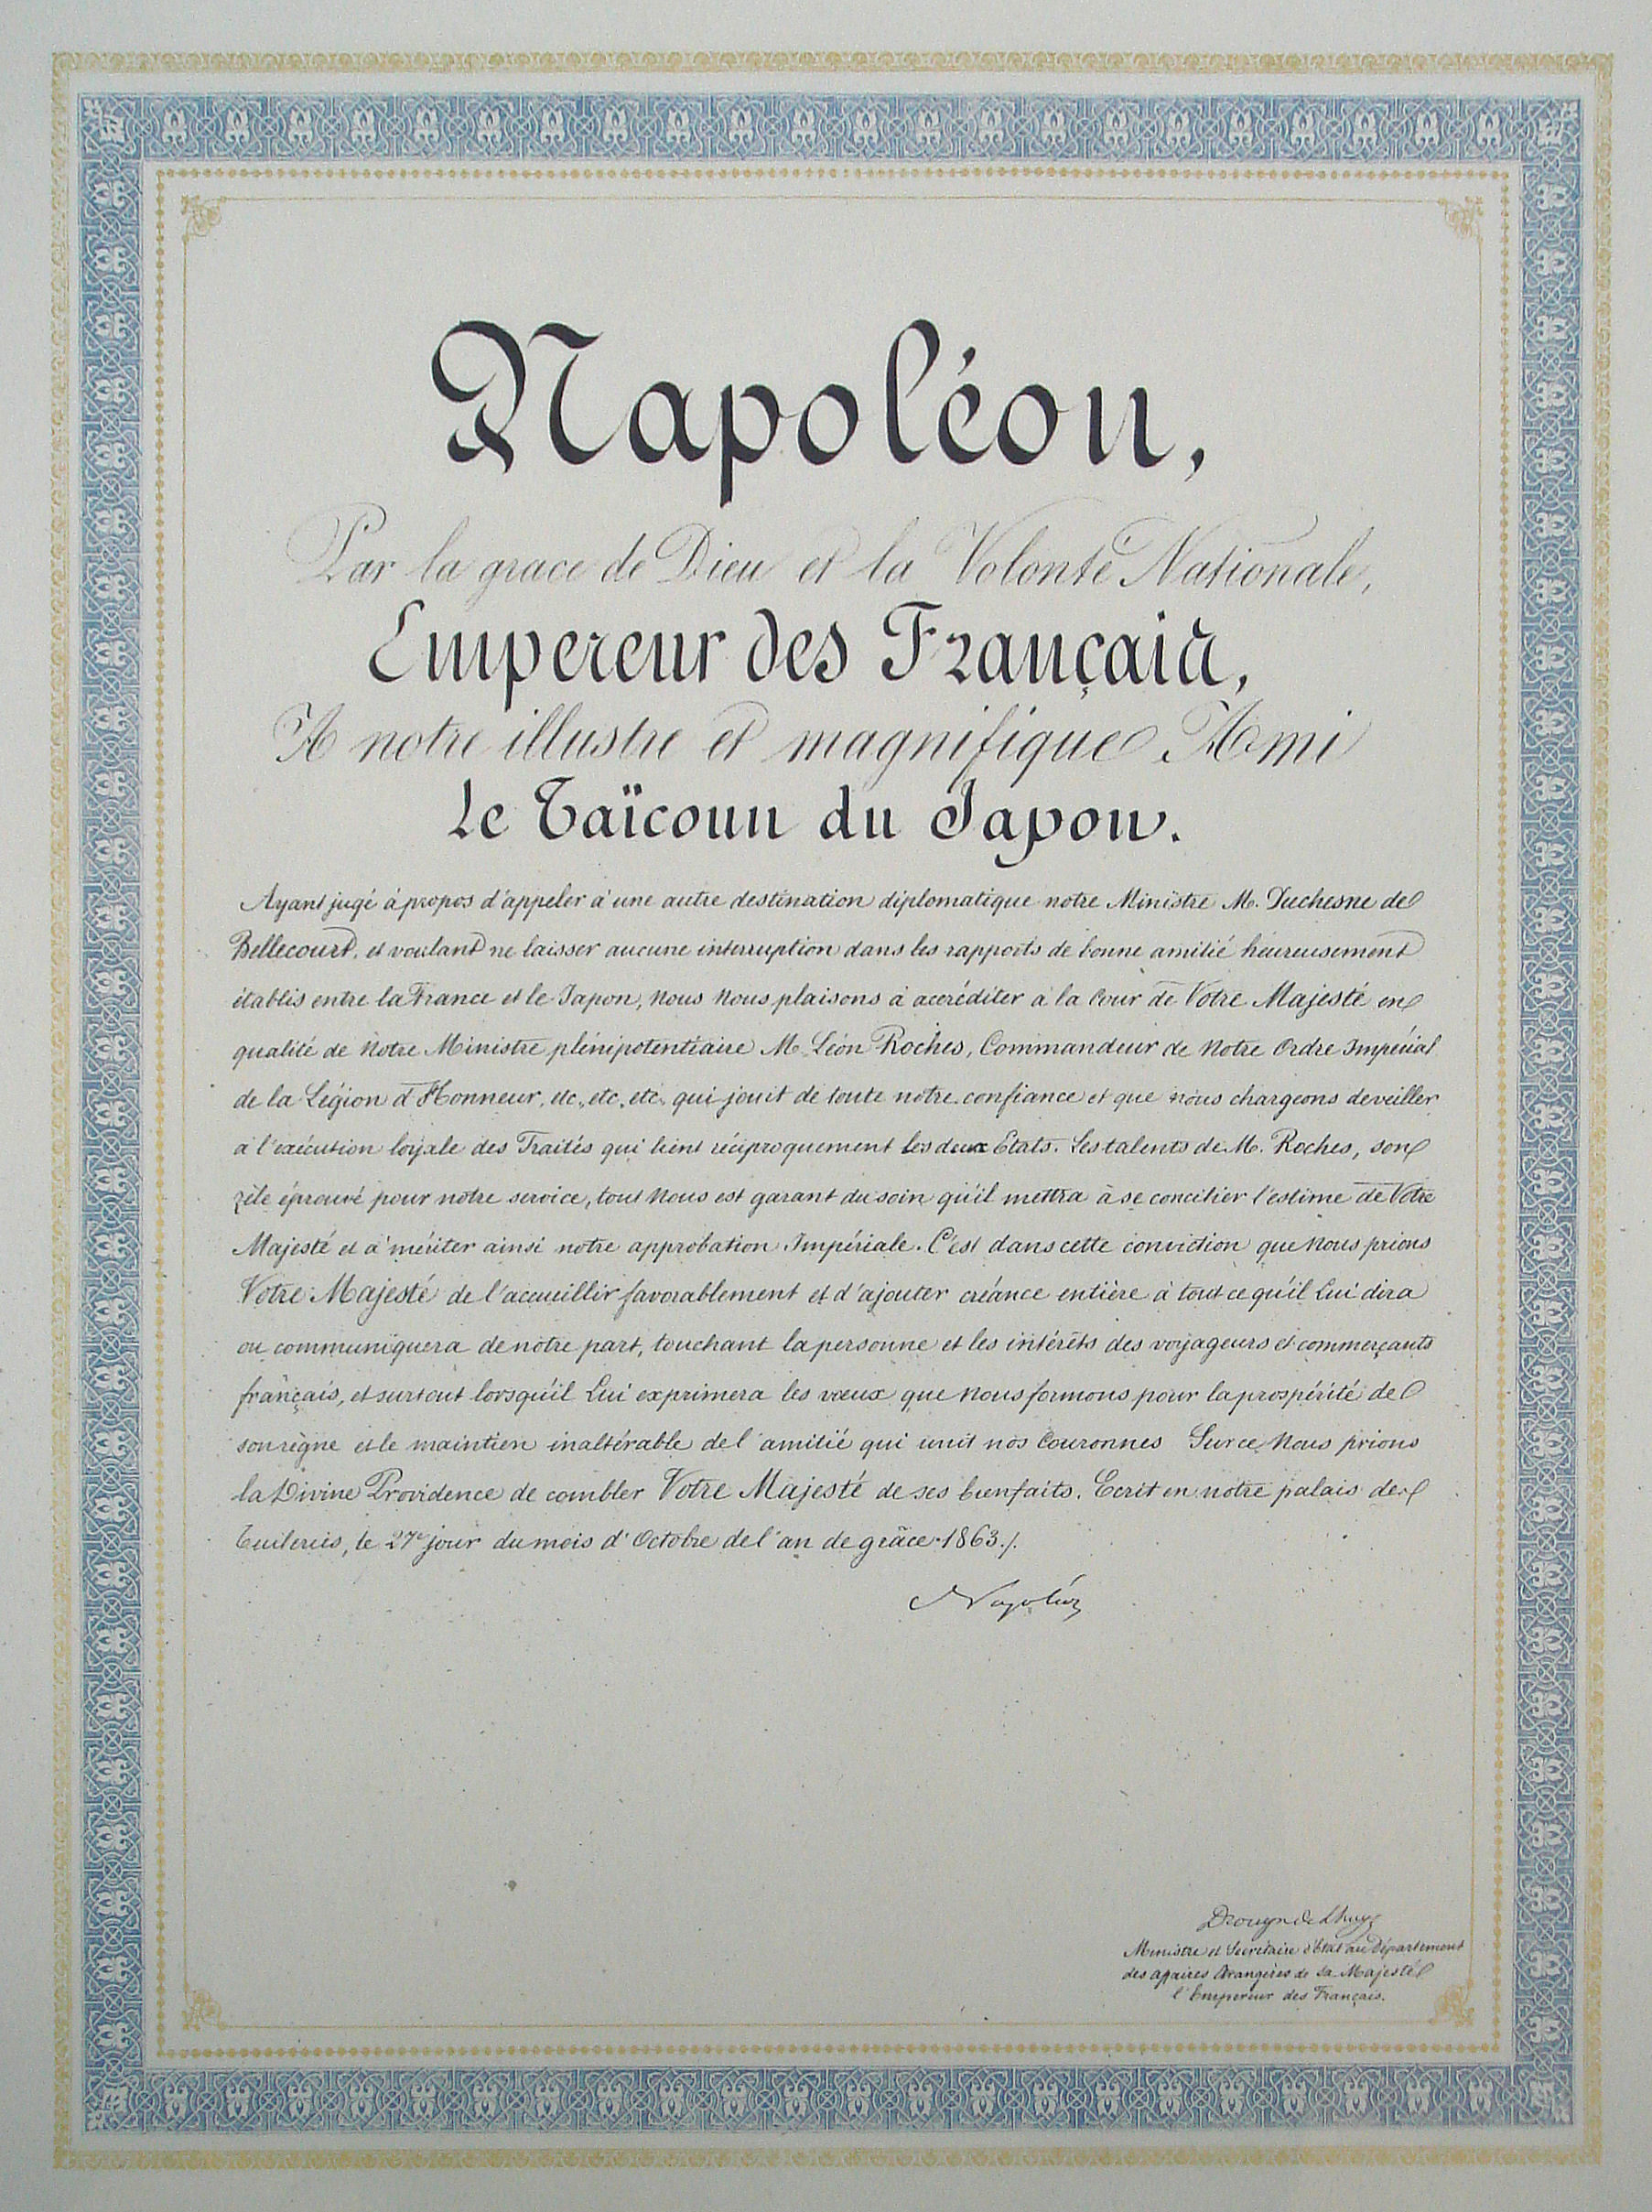 Napoléon,
Par la grace de Dieu et la Volonté Nationale,
Empereur des Français,
A notre illustre et magnifique Ami
Le Taïcoun du Japon.
Ayant jugé à propos d'appeler à une autre destination diplomatique notre Ministre M. Duchesne de
Bellecourt, et voulant ne laisser aucune interruption dans les rapports de bonne amitié heureusement
établis entre la France et le Japon, Nous Nous plaisons à accréditer à la Cour de Votre Majesté en
qualité de Notre Ministre plénipotentiaire M. Léon Roches, Commandeur de Notre Ordre Impérial
de la Légion d'Honneur, etc, etc, etc, qui jouit de toute notre confiance et que nous chargeons de veiller
à l'exécution loyale des Traités qui lient réciproquement les deux Etats. Les talents de M. Roches, son
zèle éprouvé pour notre service, tout Nous est garant du soin qu'il mettra à se concilier l'estime de Votre
Majesté et à mériter ainsi notre approbation Impériale. C'est dans cette conviction que Nous prions
Votre Majesté de l'accueillir favorablement et d'ajouter créance entière à tout ce qu'il Lui dira
ou communiquera de notre part, touchant la personne et les intérêts des voyageurs et commerçants
français, et surtout lorsqu'il Lui exprimera les vœux que Nous formons pour la prospérité de
son règne et le maintien inaltérable de l'amitié qui unit nos Couronnes Sur ce, Nous prions
la Divine Providence de combler Votre Majesté de ses bienfaits. Ecrit en notre palais des
Tuileries, le 27e jour du mois d'Octobre de l'an de grâce 1863./.
Napoléon
Drouyn de Lhuys
Ministre et Secrétaire d'Etat au Département
des affaires étrangères de Sa Majesté
l'Empereur des Français.